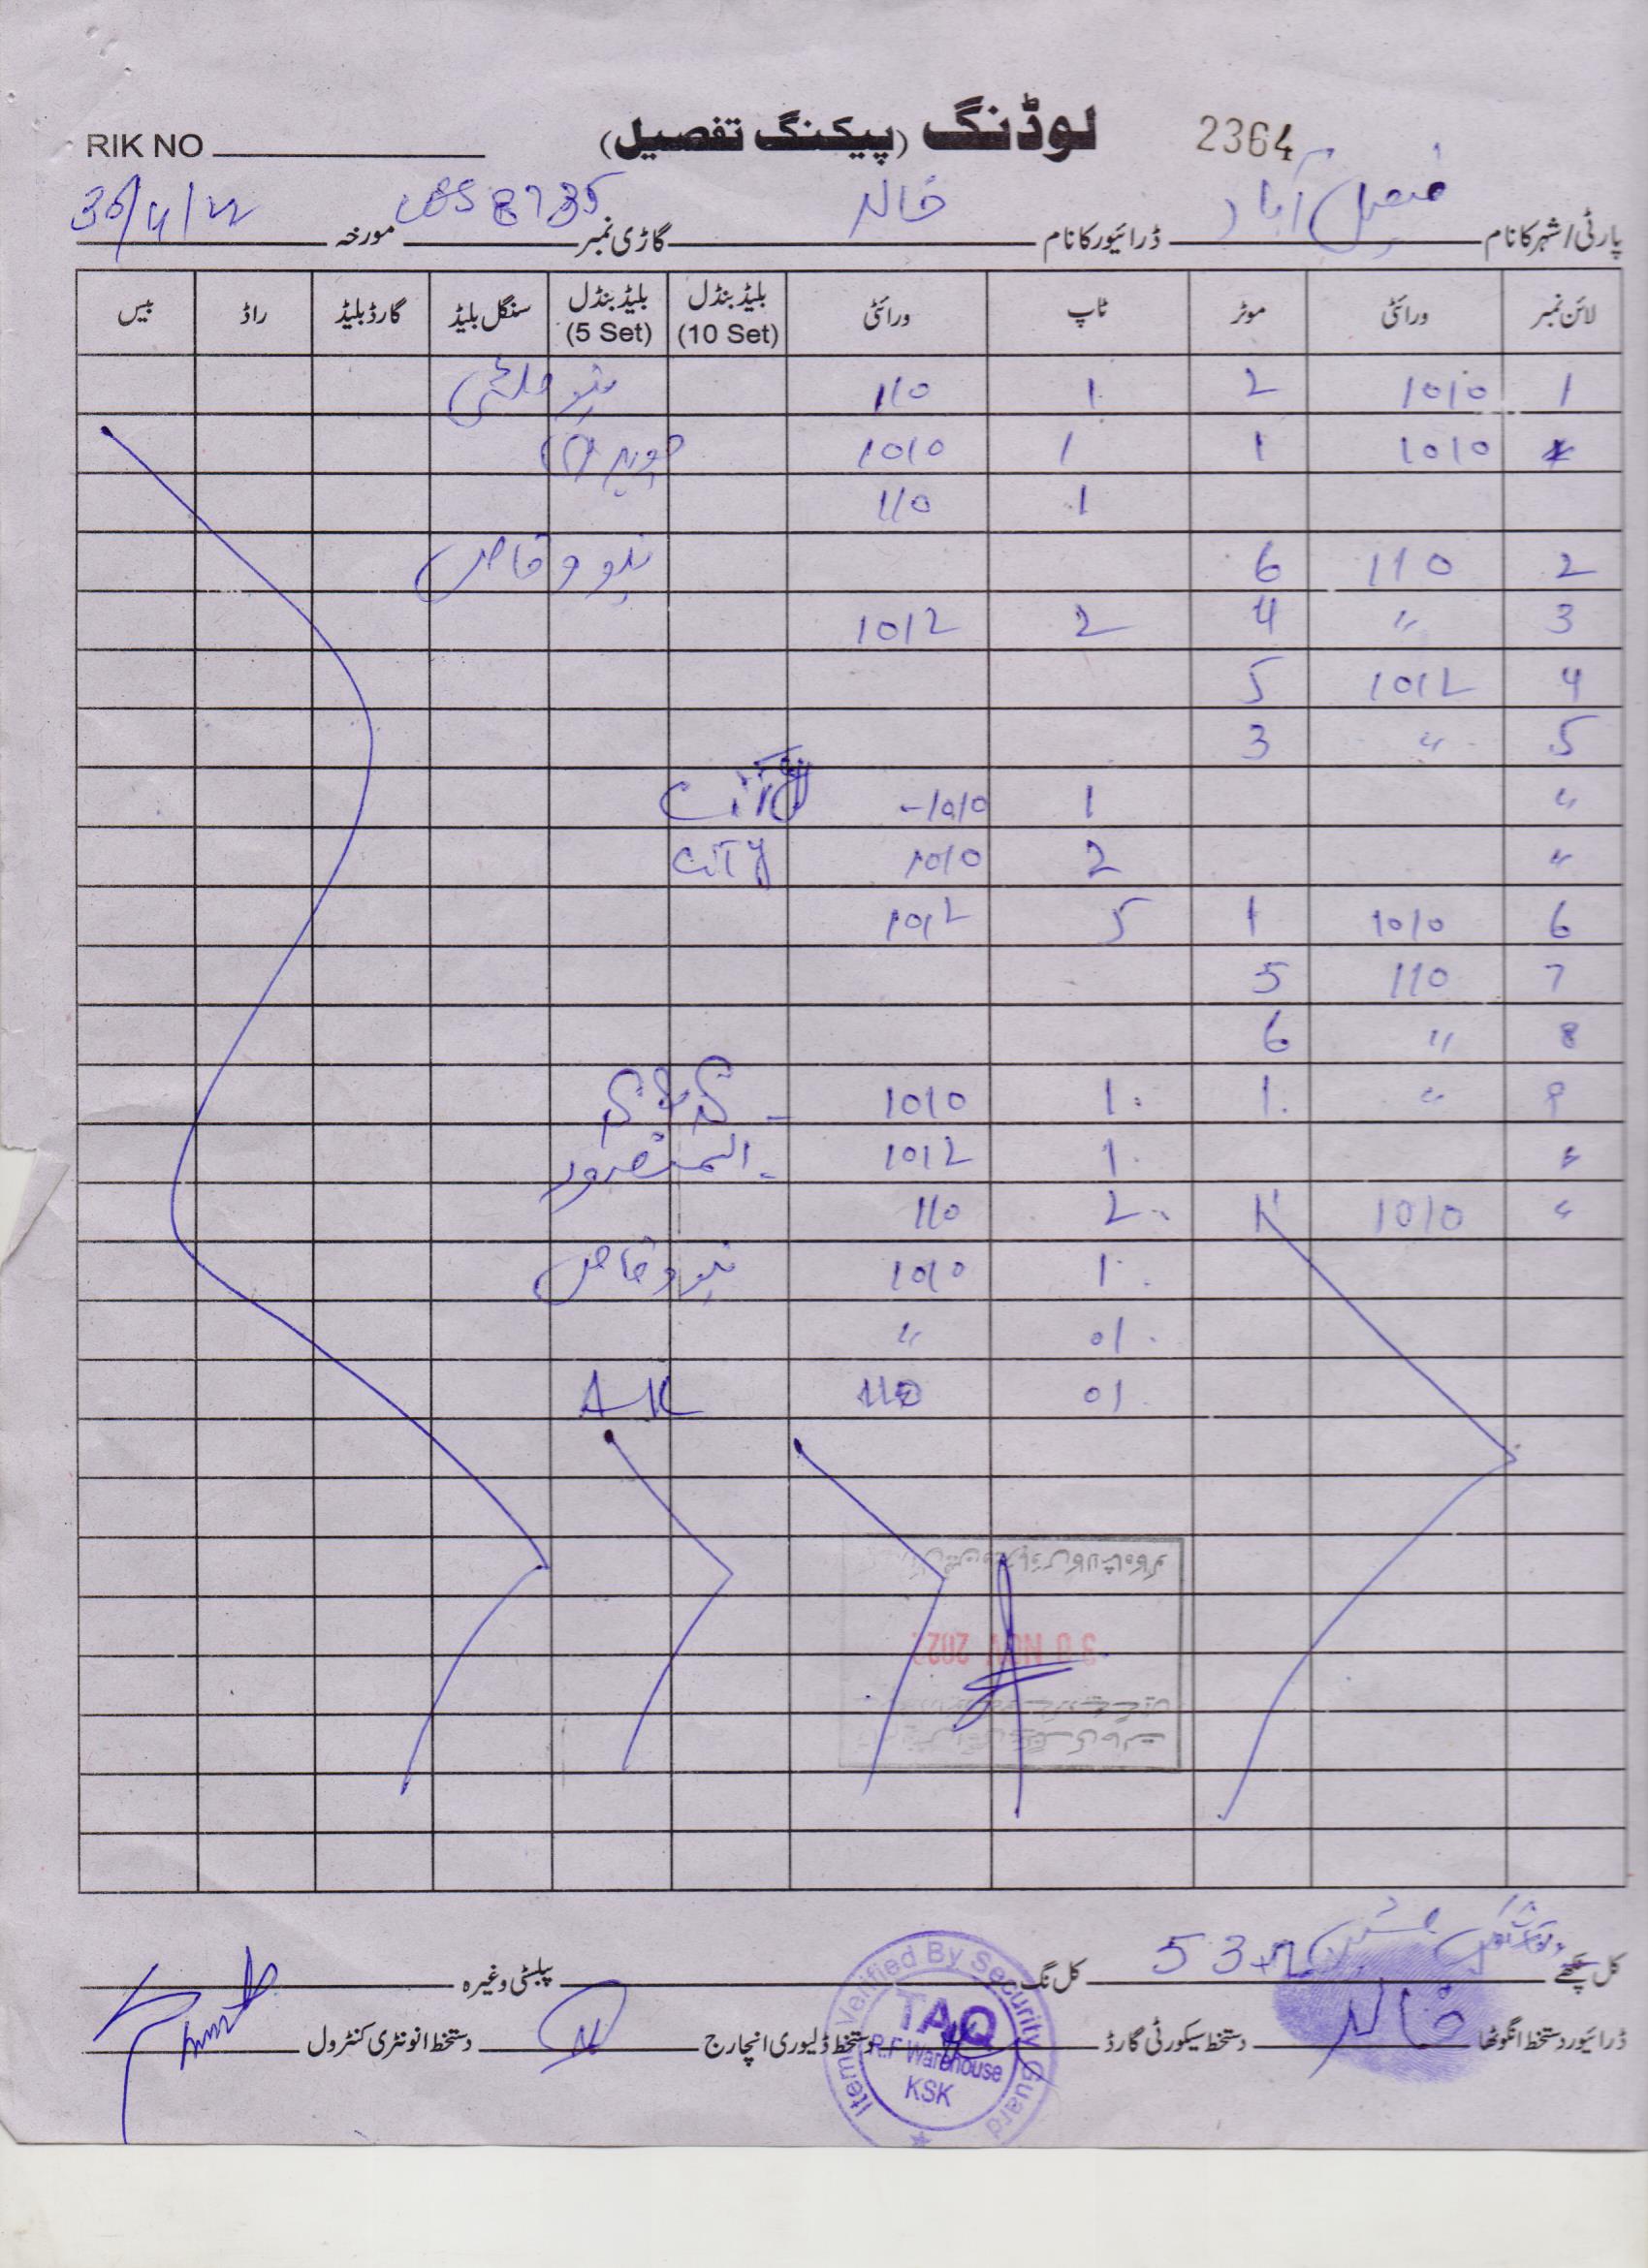 لوڈنگ (پیکنگ تفصیل) 2364
RIK NO
پارٹی/شہر کا نام فیصل آباد ڈرائیور کا نام خالد گاڑی نمبر LES 8735 مورخہ
لائن نمبر ورائٹی موٹر ٹاپ ورائٹی بلیڈ بنڈل (10 Set) بلیڈ بنڈل (5 Set) سنگل بلیڈ گارڈ بلیڈ راڈ بیس
1 1010 2 1 110 نیو
1010 1 1 1010
1 110
2 110 6 نیو وقاص
3 〃 4 2 1012
4 1012 5
5 〃 3
〃 1 1010 CiTy
〃 2 1010 CiTy
6 1010 1 5 1012
7 110 5
8 〃 6
9 〃 1 1 1010
〃 1 1012 المنصور
〃 1010 2 110
1 1010 نیو وقاص
01 〃
01 110 AK
30 NOV 202
کل پنکھے 53 کل نگ پبلسٹی وغیرہ
ڈرائیور دستخط انگوٹھا خالد دستخط سیکورٹی گارڈ دستخط ڈلیوری انچارج دستخط انونٹری کنٹرول
Item Verified By Security Guard
TAQ
R.F Warehouse
KSK